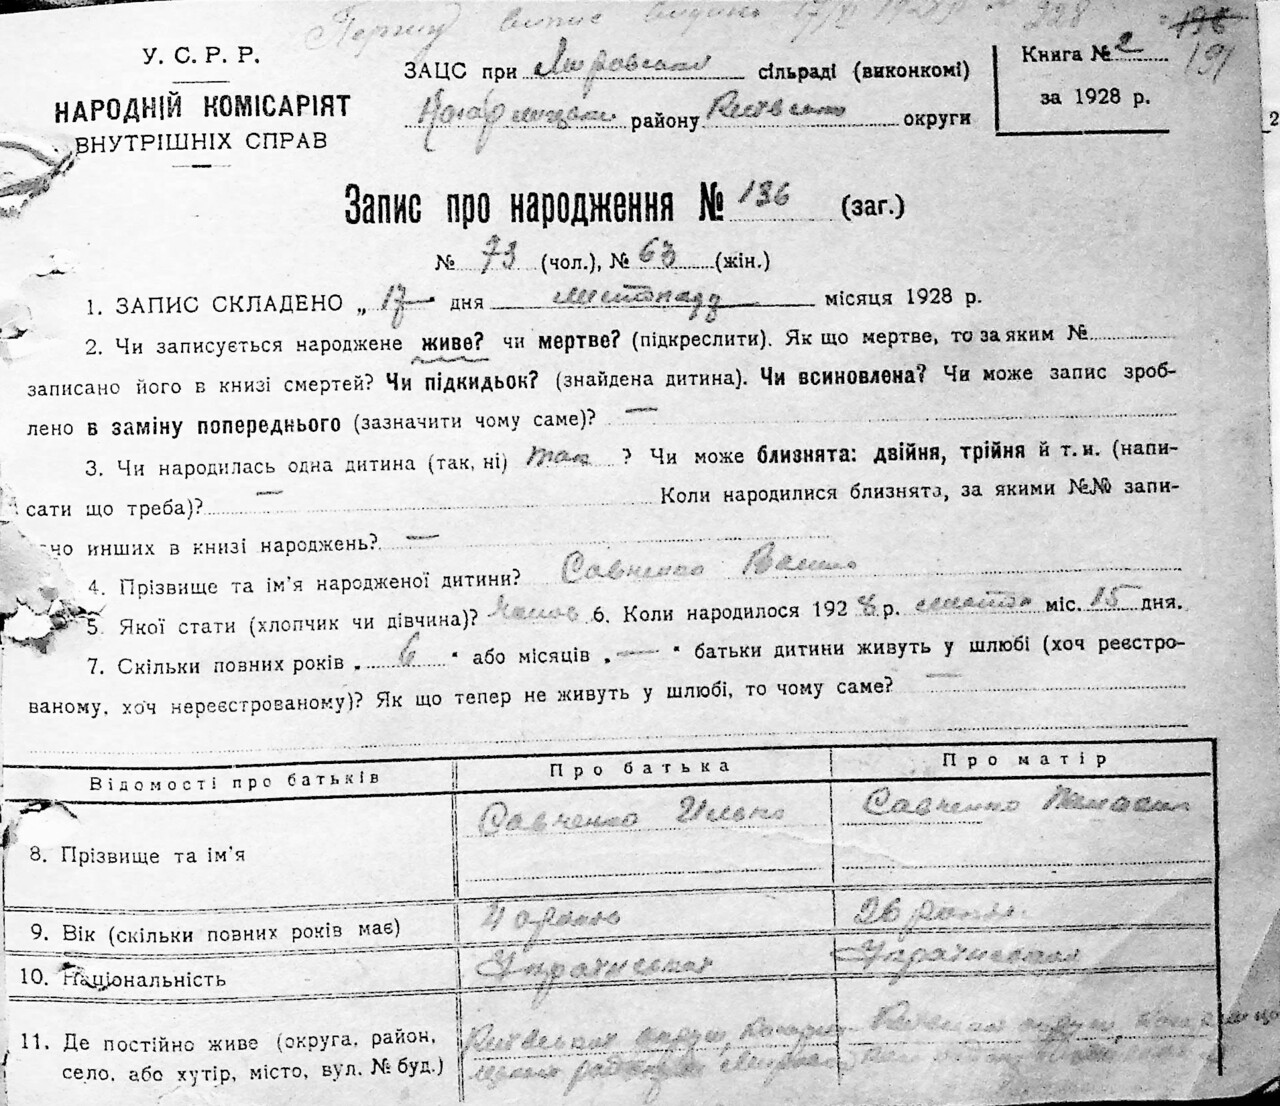 Першу випис видано 17/XI 1928 р № 228
196
191
У. С. Р. Р.
НАРОДНІЙ КОМІСАРІЯТ
ВНУТРІШНІХ СПРАВ
ЗАЦС при Мировській сільраді (виконкомі)
Кагарлицьк. району Київської округи
Книга № 2
за 1928 р.
Запис про народження № 136 (заг.)
№ 73 (чол.), № 63 (жін.)
1. ЗАПИС СКЛАДЕНО „ 17 дня листопаду місяця 1928 р.
2. Чи записується народжене живе? чи мертве? (підкреслити). Як що мертве, то за яким №
записано його в книзі смертей? Чи підкидьок? (знайдена дитина). Чи всиновлена? Чи може запис зроб-
лено в заміну попереднього (зазначити чому саме)? —
3. Чи народилась одна дитина (так, ні) так ? Чи може близнята: двійня, трійня й т. и. (напи-
сати що треба)? — Коли народилися близнята, за якими №№ запи-
но инших в книзі народжень? —
4. Прізвище та ім'я народженої дитини? Савченко Василь
5. Якої стати (хлопчик чи дівчина)? 6. Коли народилося 1928 р. листоп. міс. 15 дня.
7. Скільки повних років „ 6 " або місяців „ — " батьки дитини живуть у шлюбі (хоч реєстро-
ваному, хоч нереєстрованому)? Як що тепер не живуть у шлюбі, то чому саме? —
Відомості про батьків Про батька Про матір
8. Прізвище та ім'я Савченко Савченко
9. Вік (скільки повних років має) 26 років
10. Національність Українська Українська
11. Де постійно живе (округа, район,
село, або хутір, місто, вул. № буд.)
Київської округи